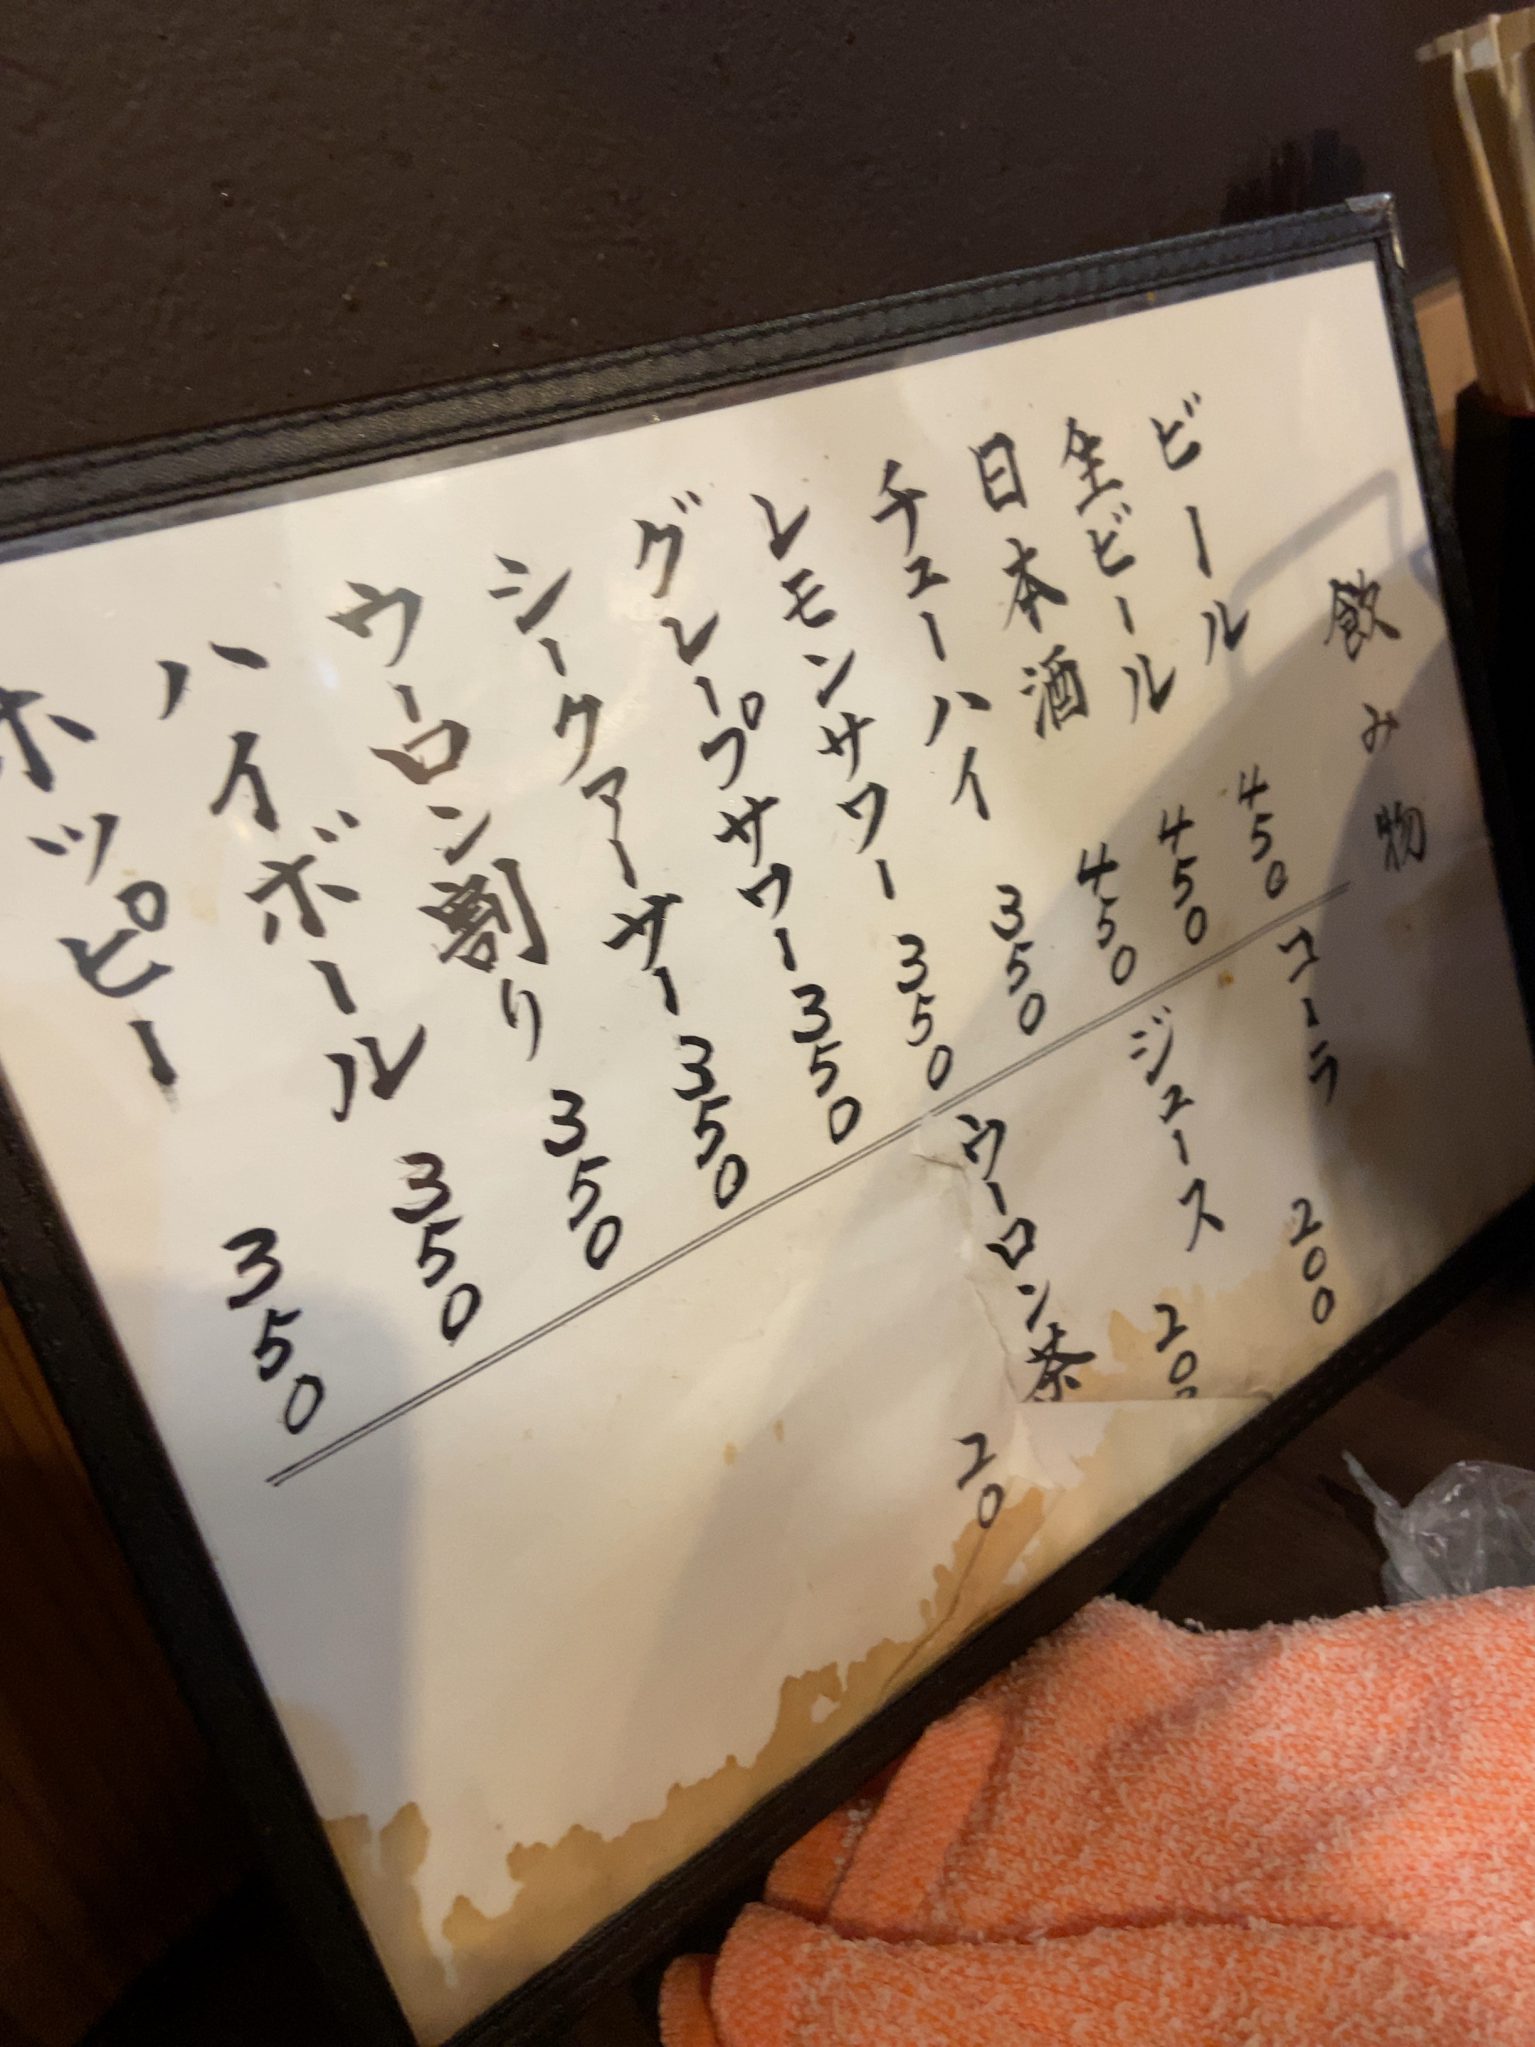 飲み物
ビール 450
生ビール 450
日本酒 450
チューハイ 350
レモンサワー 350
グレープサワー 350
シークァーサー 350
ウーロン割り 350
ハイボール 350
ホッピー 350
コーラ 200
ジュース 200
ウーロン茶 20